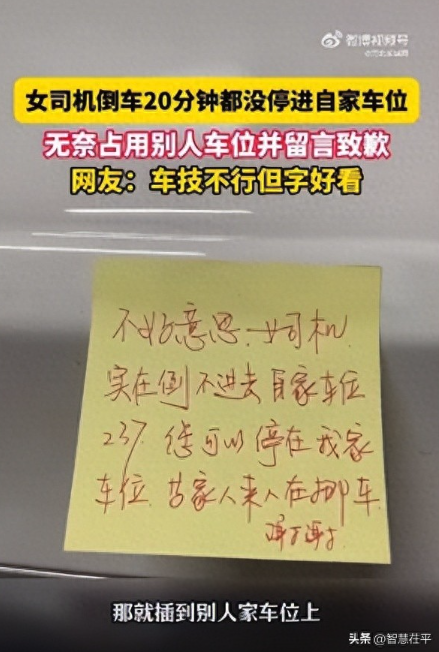 微博视频号
女司机倒车20分钟都没停进自家车位
无奈占用别人车位并留言致歉
网友：车技不行但字好看
不好意思.女司机
实在倒不进去自家车位
237.您可以停在我家
车位.当家人来人在挪车
谢谢
那就插到别人家车位上
头条@智慧茌平